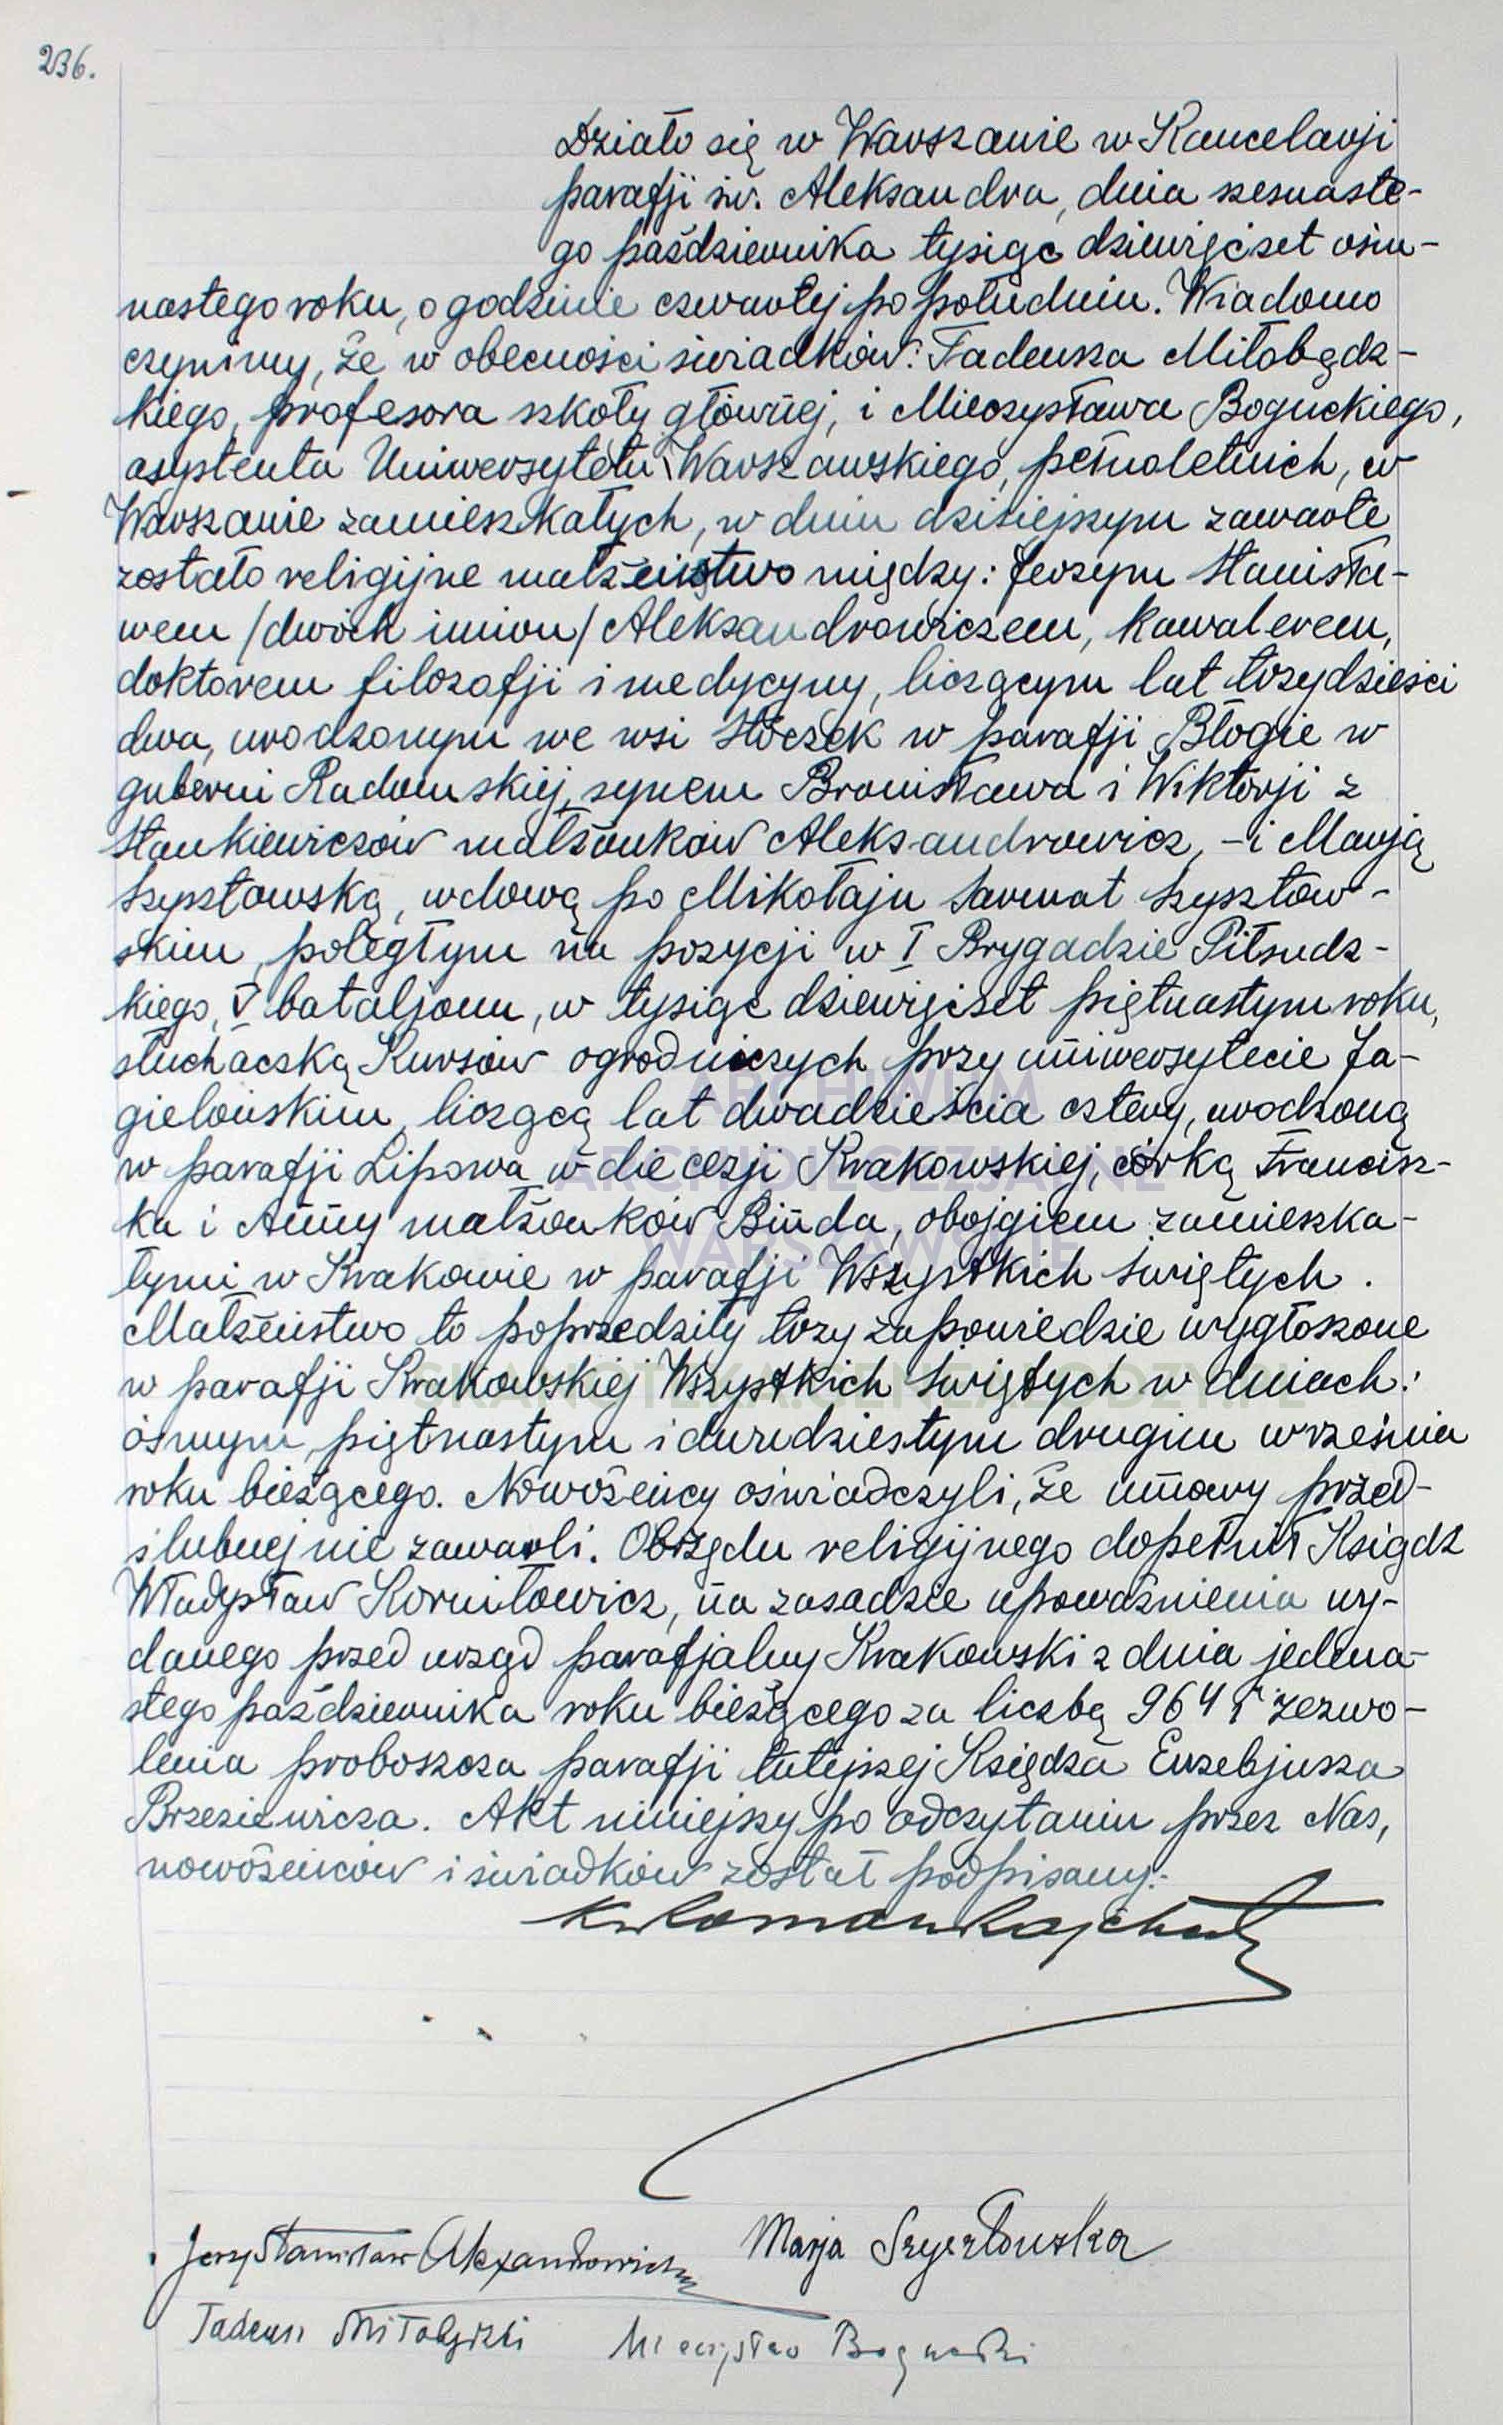 236.
Działo się w Warszawie w Kancelarji
parafji św. Aleksandra, dnia szesnaste-
go października tysiąc dziewięćset ośm-
nastego roku, o godzinie czwartej po południu. Wiadomo
czynimy, że w obecności świadków: Tadeusza Miłobędz-
kiego, profesora szkoły głównej, i Mieczysława Boguckiego,
asystenta Uniwersytetu Warszawskiego, pełnoletnich, w
Warszawie zamieszkałych, w dniu dzisiejszym zawarte
zostało religijne małżeństwo między: Jerzym Stanisła-
wem /dwóch imion/ Aleksandrowiczem, kawalerem,
doktorem filozofji i medycyny, liczącym lat trzydzieści
dwa, urodzonym we wsi Stoczek w parafji Błogie w
guberni Radomskiej, synem Bronisława i Wiktorji z
Stankiewiczów małżonków Aleksandrowicz, - i Marją
Szyszłowską, wdową po Mikołaju Sarmat Szyszłow-
skim, poległym na pozycji w I Brygadzie Piłsudz-
kiego, V bataljonu, w tysiąc dziewięćset piętnastym roku,
słuchaczką Kursów ogrodniczych przy uniwersytecie Ja-
gielońskim, liczącą lat dwadzieścia cztery, urodzoną
w parafji Lipowa w diecezji Krakowskiej, córką Francisz-
ka i Anny małżonków Binda, obojgiem zamieszka-
łymi w Krakowie w parafji Wszystkich Świętych.
Małżeństwo to poprzedziły trzy zapowiedzie wygłoszone
w parafji Krakowskiej Wszystkich Świętych w dniach:
ósmym, piętnastym i dwudziestym drugim września
roku bieżącego. Nowożeńcy oświadczyli, że umowy przed-
ślubnej nie zawarli. Obrzędu religijnego dopełnił Ksiądz
Władysław Korniłowicz, na zasadzie upoważnienia wy-
danego przed urząd parafjalny Krakowski z dnia jedena-
stego października roku bieżącego za liczbą 964 i zezwo-
lenia proboszcza parafji tutejszej Księdza Euzebjusza
Brzeziewicza. Akt niniejszy po odczytaniu przez Nas,
nowożeńców i świadków został podpisany.
Jerzy Stanisław Alexandrowicz Marja Szyszłowska
Tadeusz Miłobędzki Mieczysław Bogucki
ARCHIWUM
ARCHIDIECEZJALNE
WARSZAWSKIE
SKANOTEKA.GENEALODZY.PL